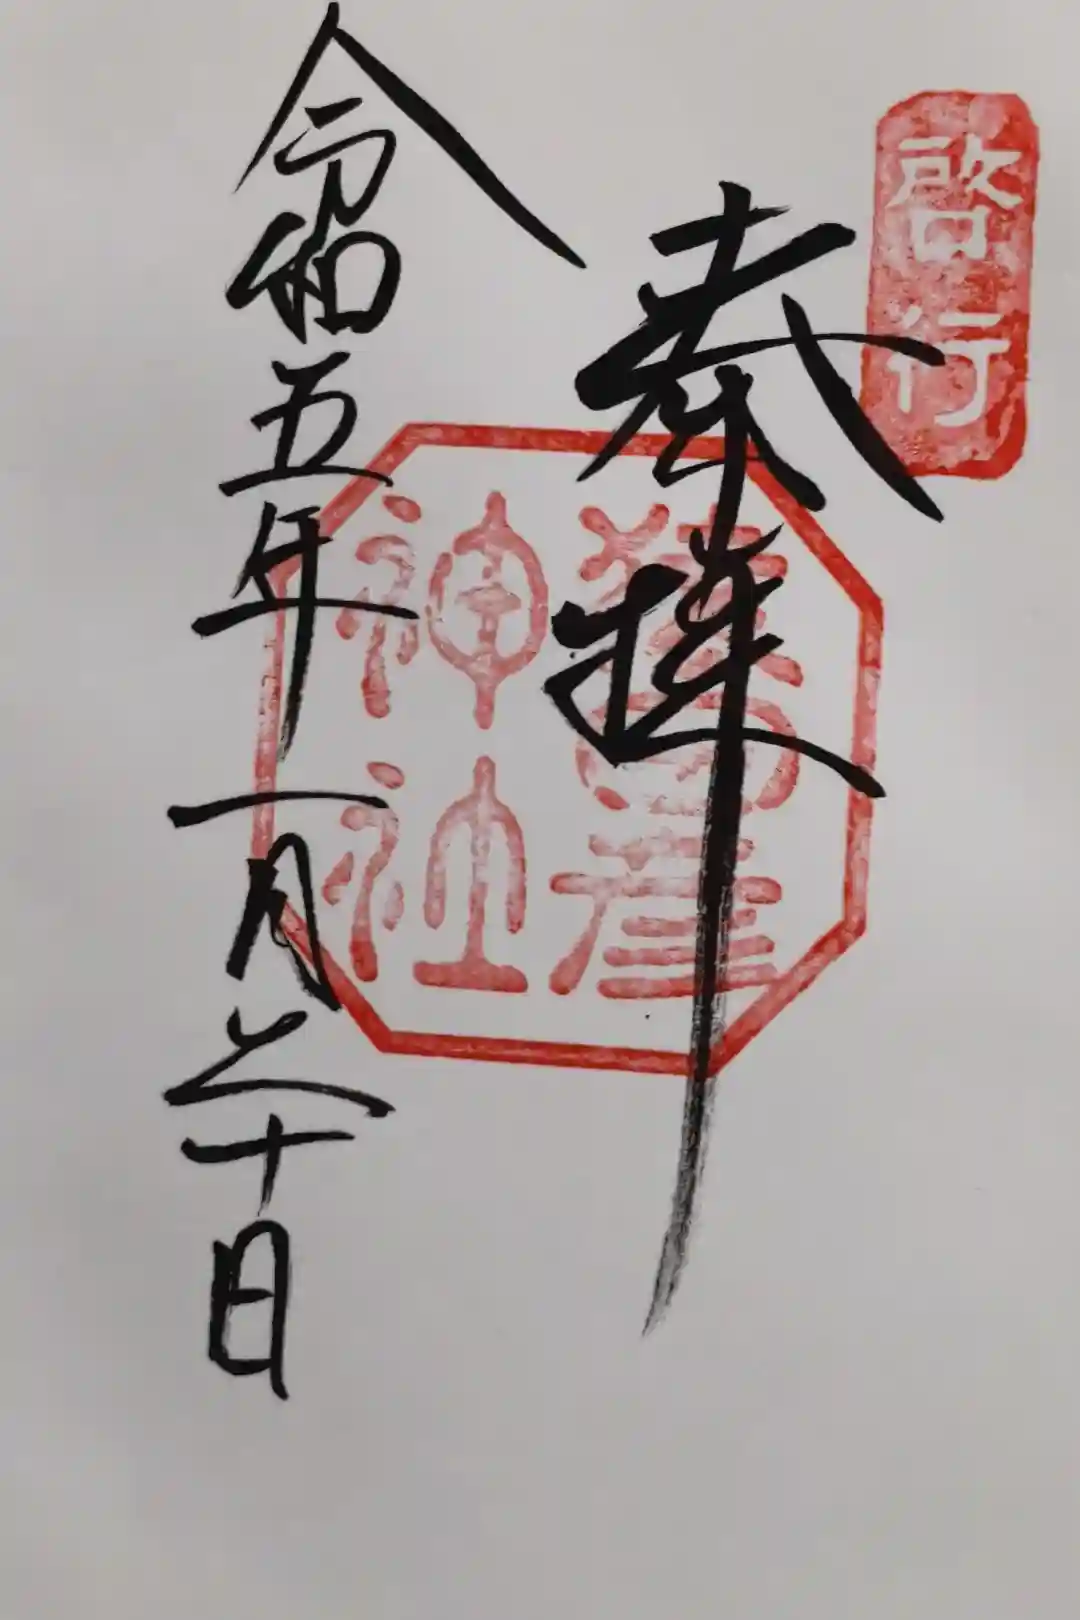 啓行
奉拝
猿田彦
神社
令和五年一月二十日